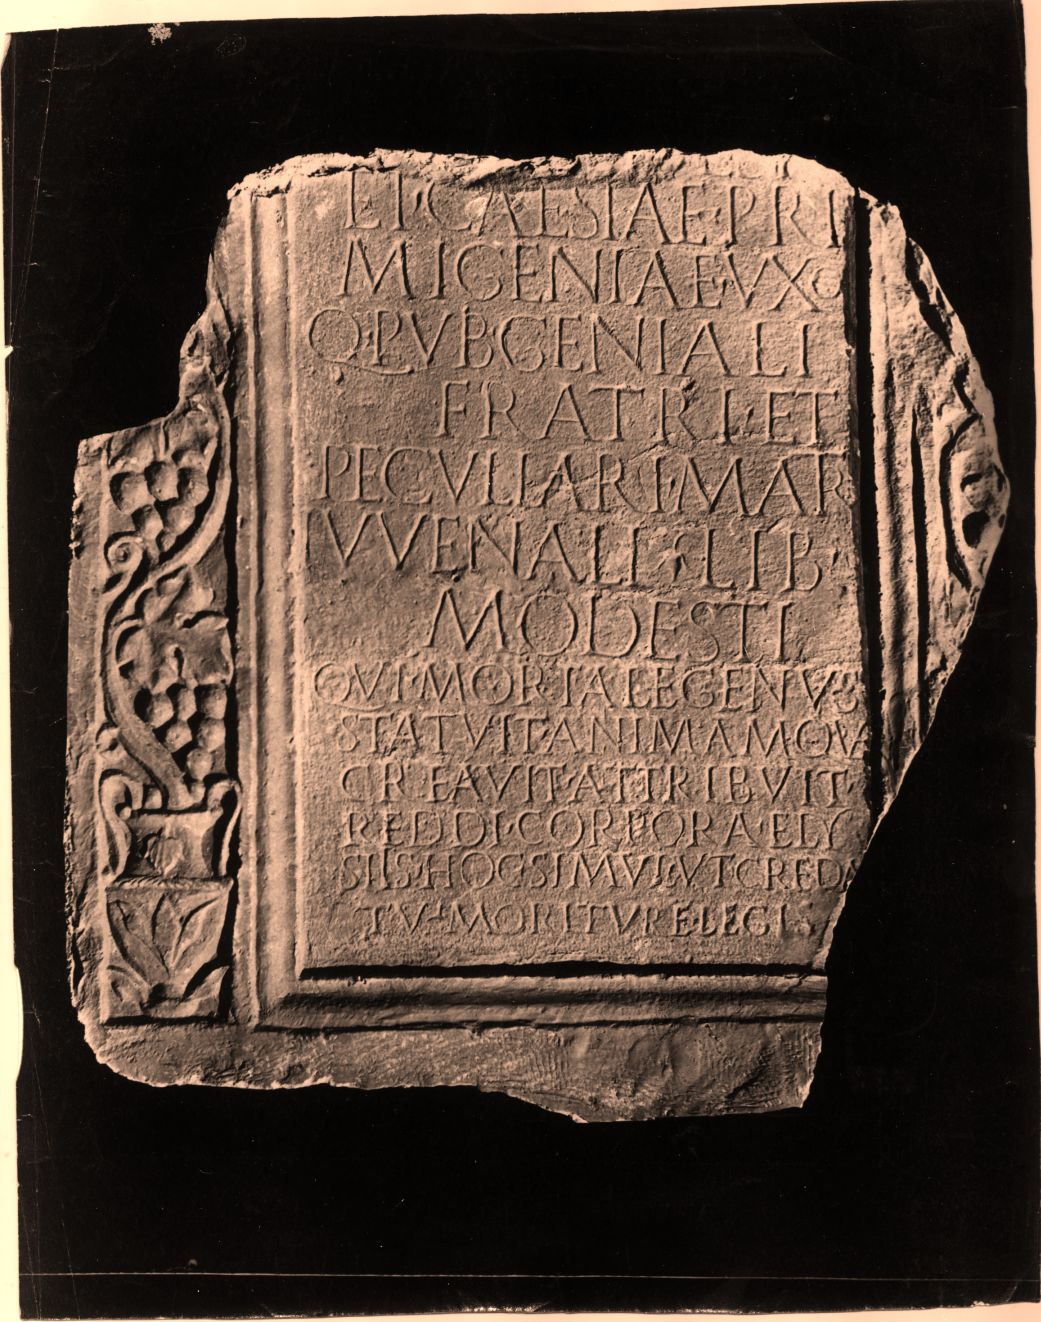 ET·CAESIAE·PRI
MIGENIAE·VXO
Q·PVB·GENIALI
FRATRI·ET
PECVLIARI·MAR
IVVENALI·LIB
MODESTI
QVI·MORTALEGENVS
STATVIT·ANIMAMQVE
CREAVIT·ATTRIBVIT
REDDI·CORPORA·ELY
SIIS·HOCSIMVS·VTCREDA
TV·MORITVRELEGIS